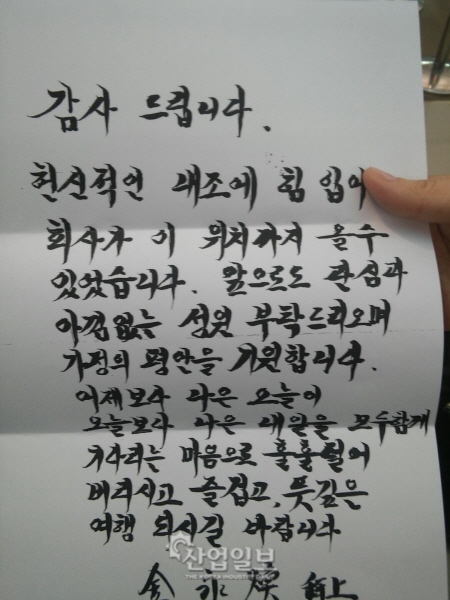 감사 드립니다.
헌신적인 내조에 힘 입어
회사가 이 위치까지 올수
있었습니다. 앞으로도 관심과
아낌없는 성원 부탁드리오며
가정의 평안을 기원합니다.
어제보다 나은 오늘이
오늘보다 나은 내일을 모두함께
기다리는 마음으로 훌훌 털어
버리시고 즐겁고, 뜻깊은
여행 되시길 바랍니다
산업일보
THE KOREA INDUSTRY DAILY
金 永 上